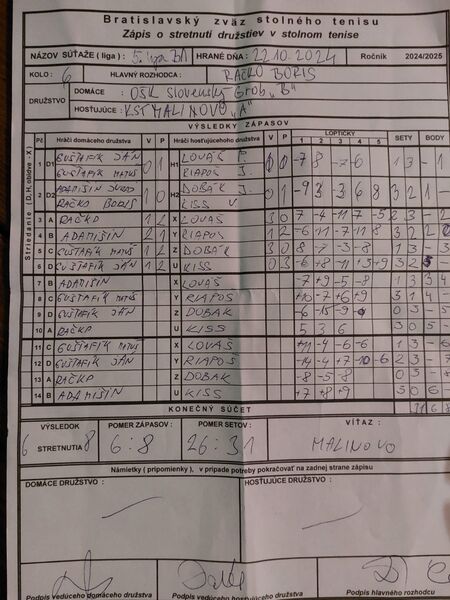 Bratislavský zväz stolného tenisu
Zápis o stretnutí družstiev v stolnom tenise
NÁZOV SÚŤAŽE ( liga ) : 5. liga BA HRANÉ DŇA : 22.10.2024 Ročník 2024/2025
KOLO : 6 HLAVNÝ ROZHODCA : RAČKO BORIS
DRUŽSTVO DOMÁCE : OŠK Slovenský Grob „B"
HOSŤUJÚCE : KST MALINOVO „A"
VÝSLEDKY ZÁPASOV
Hráči domáceho družstva V P Hráči hosťujúceho družstva V P LOPTIČKY SETY BODY
1 2 3 4 5
1 D1 GUSTAFIK JÁN GUSTAFIK MATÚŠ 0 1 H1 LOVÁŠ P. RIAPOŠ J. -7 8 -7 -6 1 3 - 1
2 D2 RAČKO BORIS 1 0 H2 DOBÁK J. KISS V -9 3 -3 6 8 3 2 1
3 A RAČKO 1 2 X LOVÁŠ 3 0 7 -4 -11 7 -5 2 3 - 2
4 B ADAMIŠIN 2 1 Y RIAPOŠ 1 2 -6 11 -7 11 8 3 2 2
5 C GUSTAFIK MATÚŠ 1 2 Z DOBÁK 3 0 8 -7 -3 -8 1 3 - 3
6 D GUSTAFIK JÁN 1 2 U KISS 0 3 -6 +8 -11 +3 +9 3 2
7 B ADAMIŠIN X LOVÁŠ -7 +9 -5 -8 1 3 3 4
8 C GUSTAFIK MATÚŠ Y RIAPOŠ +10 -7 +6 +9 3 1 4 -
9 D GUSTAFIK JÁN Z DOBAK -6 -15 -9 0 3 - 5
10 A RAČKO U KISS 5 3 6 3 0 5 -
11 C GUSTAFIK MATÚŠ X LOVÁŠ +11 -4 -6 -6 1 3 - 6
12 D GUSTAFIK JÁN Y RIAPOŠ -14 -4 +7 +10 -6 2 3 - 7
13 A RAČKO Z DOBAK -8 -5 -8 0 3 - 8
14 B ADAMIŠIN U KISS +7 +8 +9 3 0 6 -
KONEČNÝ SÚČET 6 8
VÝSLEDOK POMER ZÁPASOV : POMER SETOV : VÍŤAZ :
6 STRETNUTIA 8 6:8 26:31 MALINOVO
Námietky ( pripomienky ), v prípade potreby pokračovať na zadnej strane zápisu
DOMÁCE DRUŽSTVO : HOSŤUJÚCE DRUŽSTVO :
Podpis vedúceho domáceho družstva Podpis vedúceho hosťujúceho družstva Podpis hlavného rozhodcu